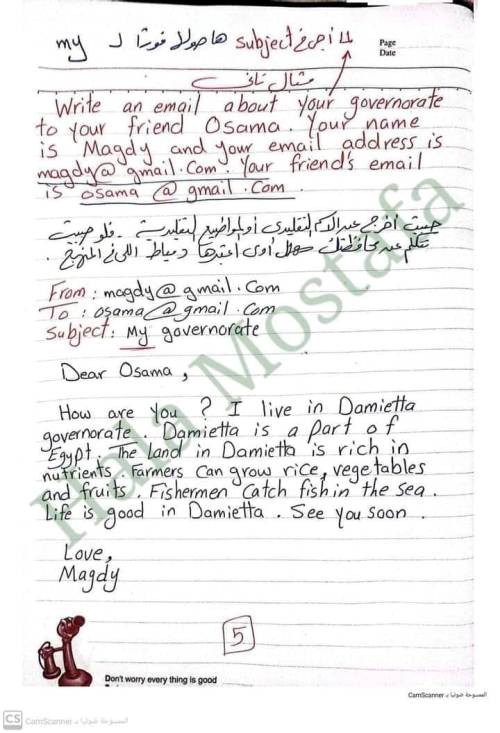 لما أجي في subject هاحوله فورًا لـ my
Page
Date
مثال تاني
Write an email about your governorate
to your friend Osama. Your name
is Magdy and your email address is
magdy@gmail.Com. Your friend's email
is osama@gmail.Com.
حبيت أخرج عن الكلام التقليدي أو المواضيع التقليدية - فلو حبيت
تتكلم عن محافظتك سهل أوي اعتبرها دمياط اللي في المنهج.
From: magdy@gmail.Com
To: osama@gmail.Com
Subject: My governorate
Dear Osama,
How are you? I live in Damietta
governorate. Damietta is a part of
Egypt. The land in Damietta is rich in
nutrients. Farmers can grow rice, vegetables
and fruits. Fishermen catch fish in the sea.
Life is good in Damietta. See you soon.
Love,
Magdy
5
Don't worry every thing is good
Hala Mostafa
CamScanner الممسوحة ضوئيا بـ
CS CamScanner الممسوحة ضوئيا بـ